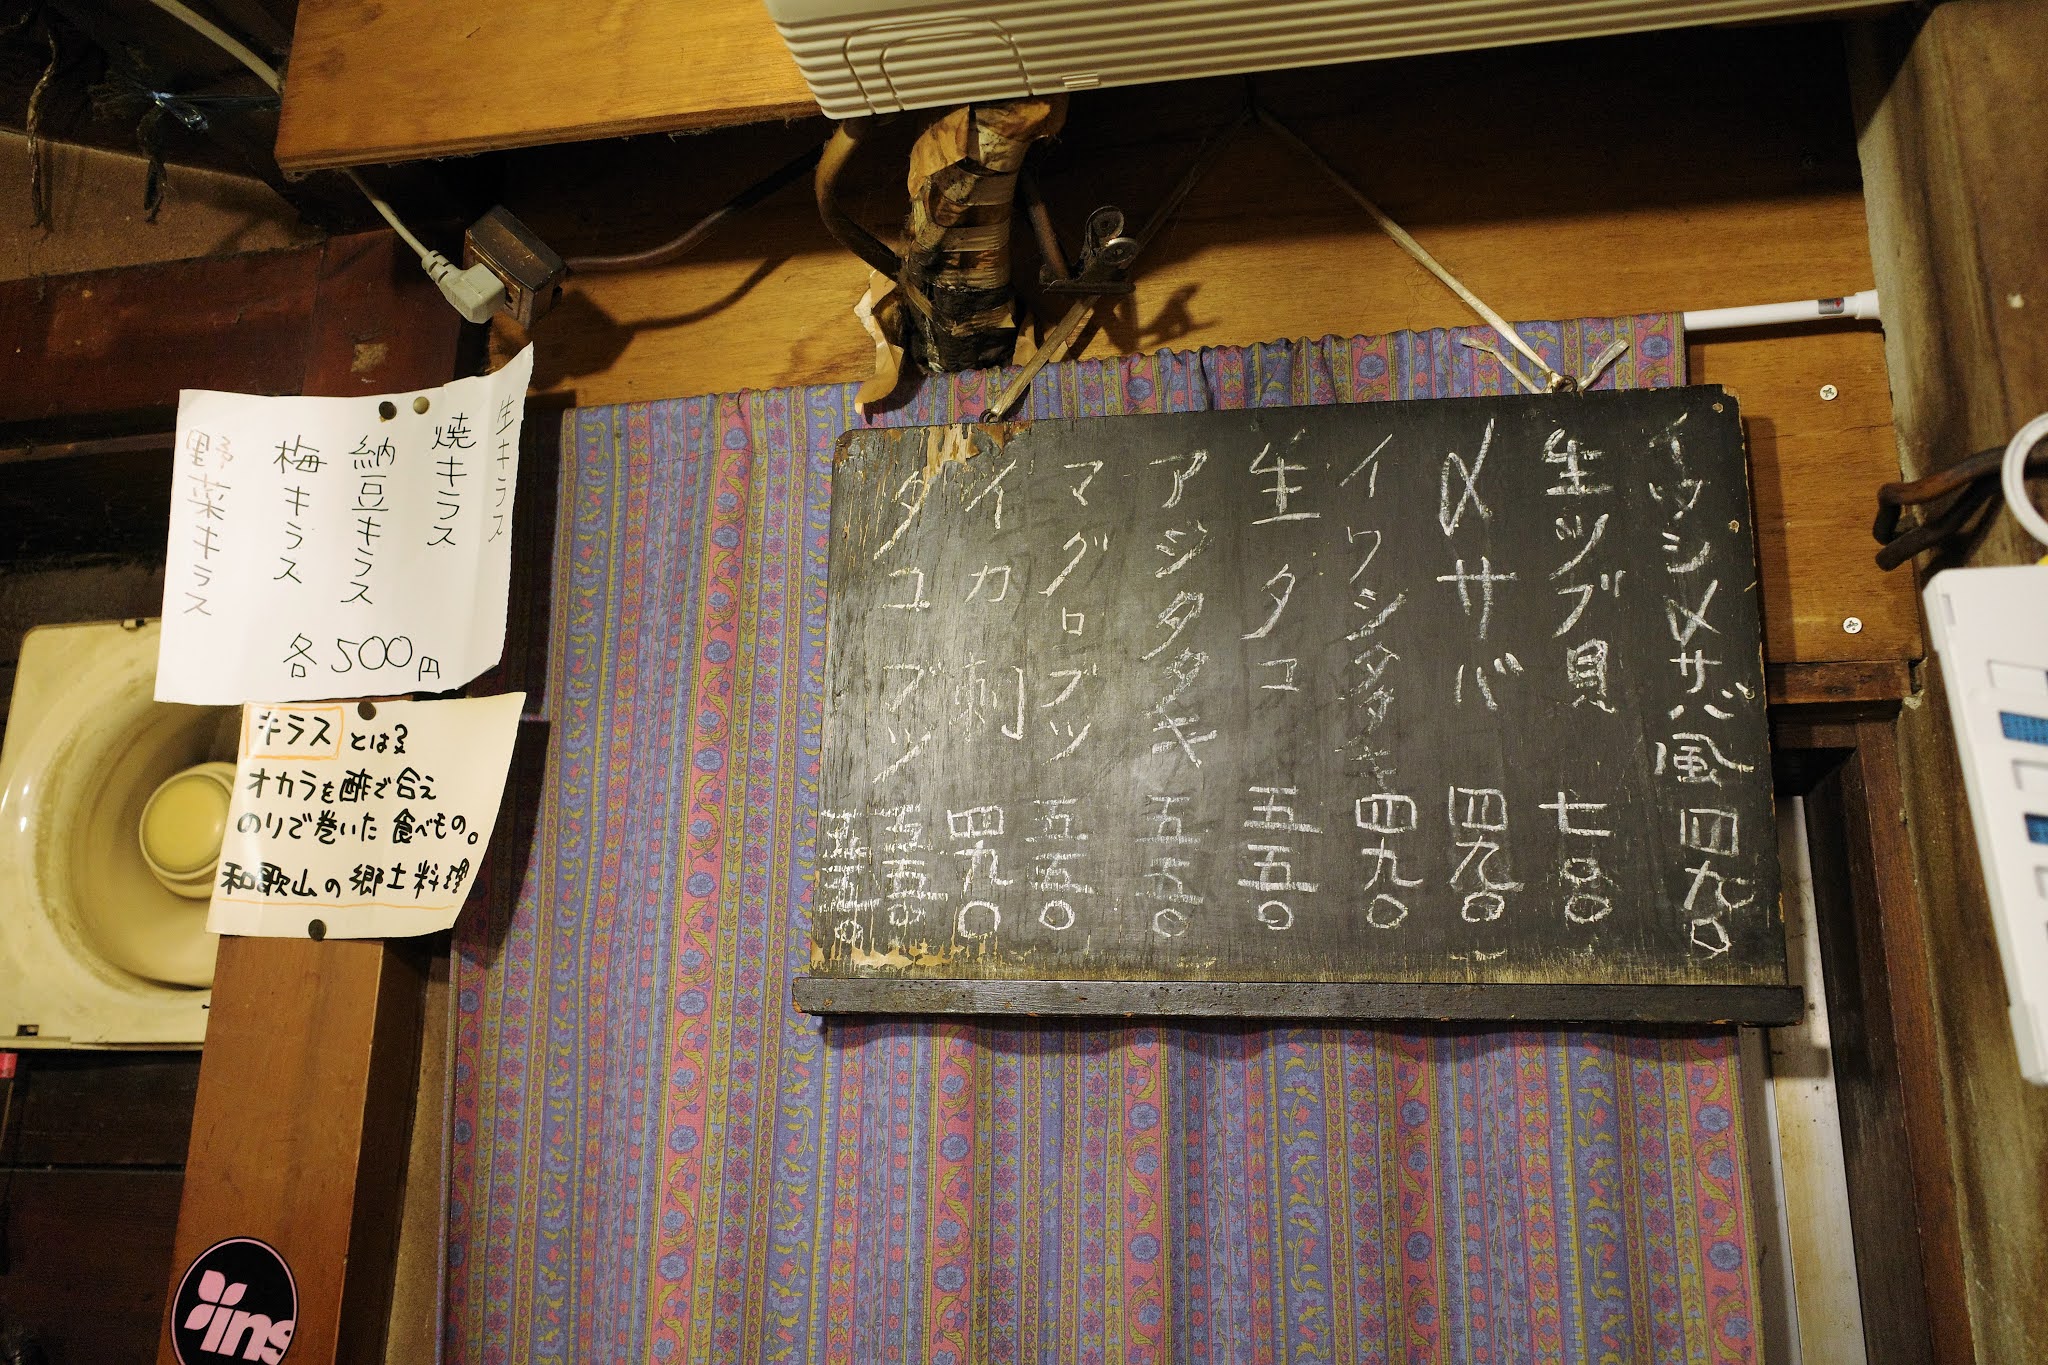 イワシ〆サバ風 四九〇
生ツブ貝 七〇〇
〆サバ 四九〇
イワシタタキ 四九〇
生タコ 五五〇
アジタタキ 五五〇
マグロブツ 五五〇
イカ刺 四九〇
タコブツ 五五〇
生キラス
焼キラス
納豆キラス
梅キラス
野菜キラス
各500円
キラス とは
オカラを酢で合え
のりで巻いた 食べもの。
和歌山の郷土料理
ins